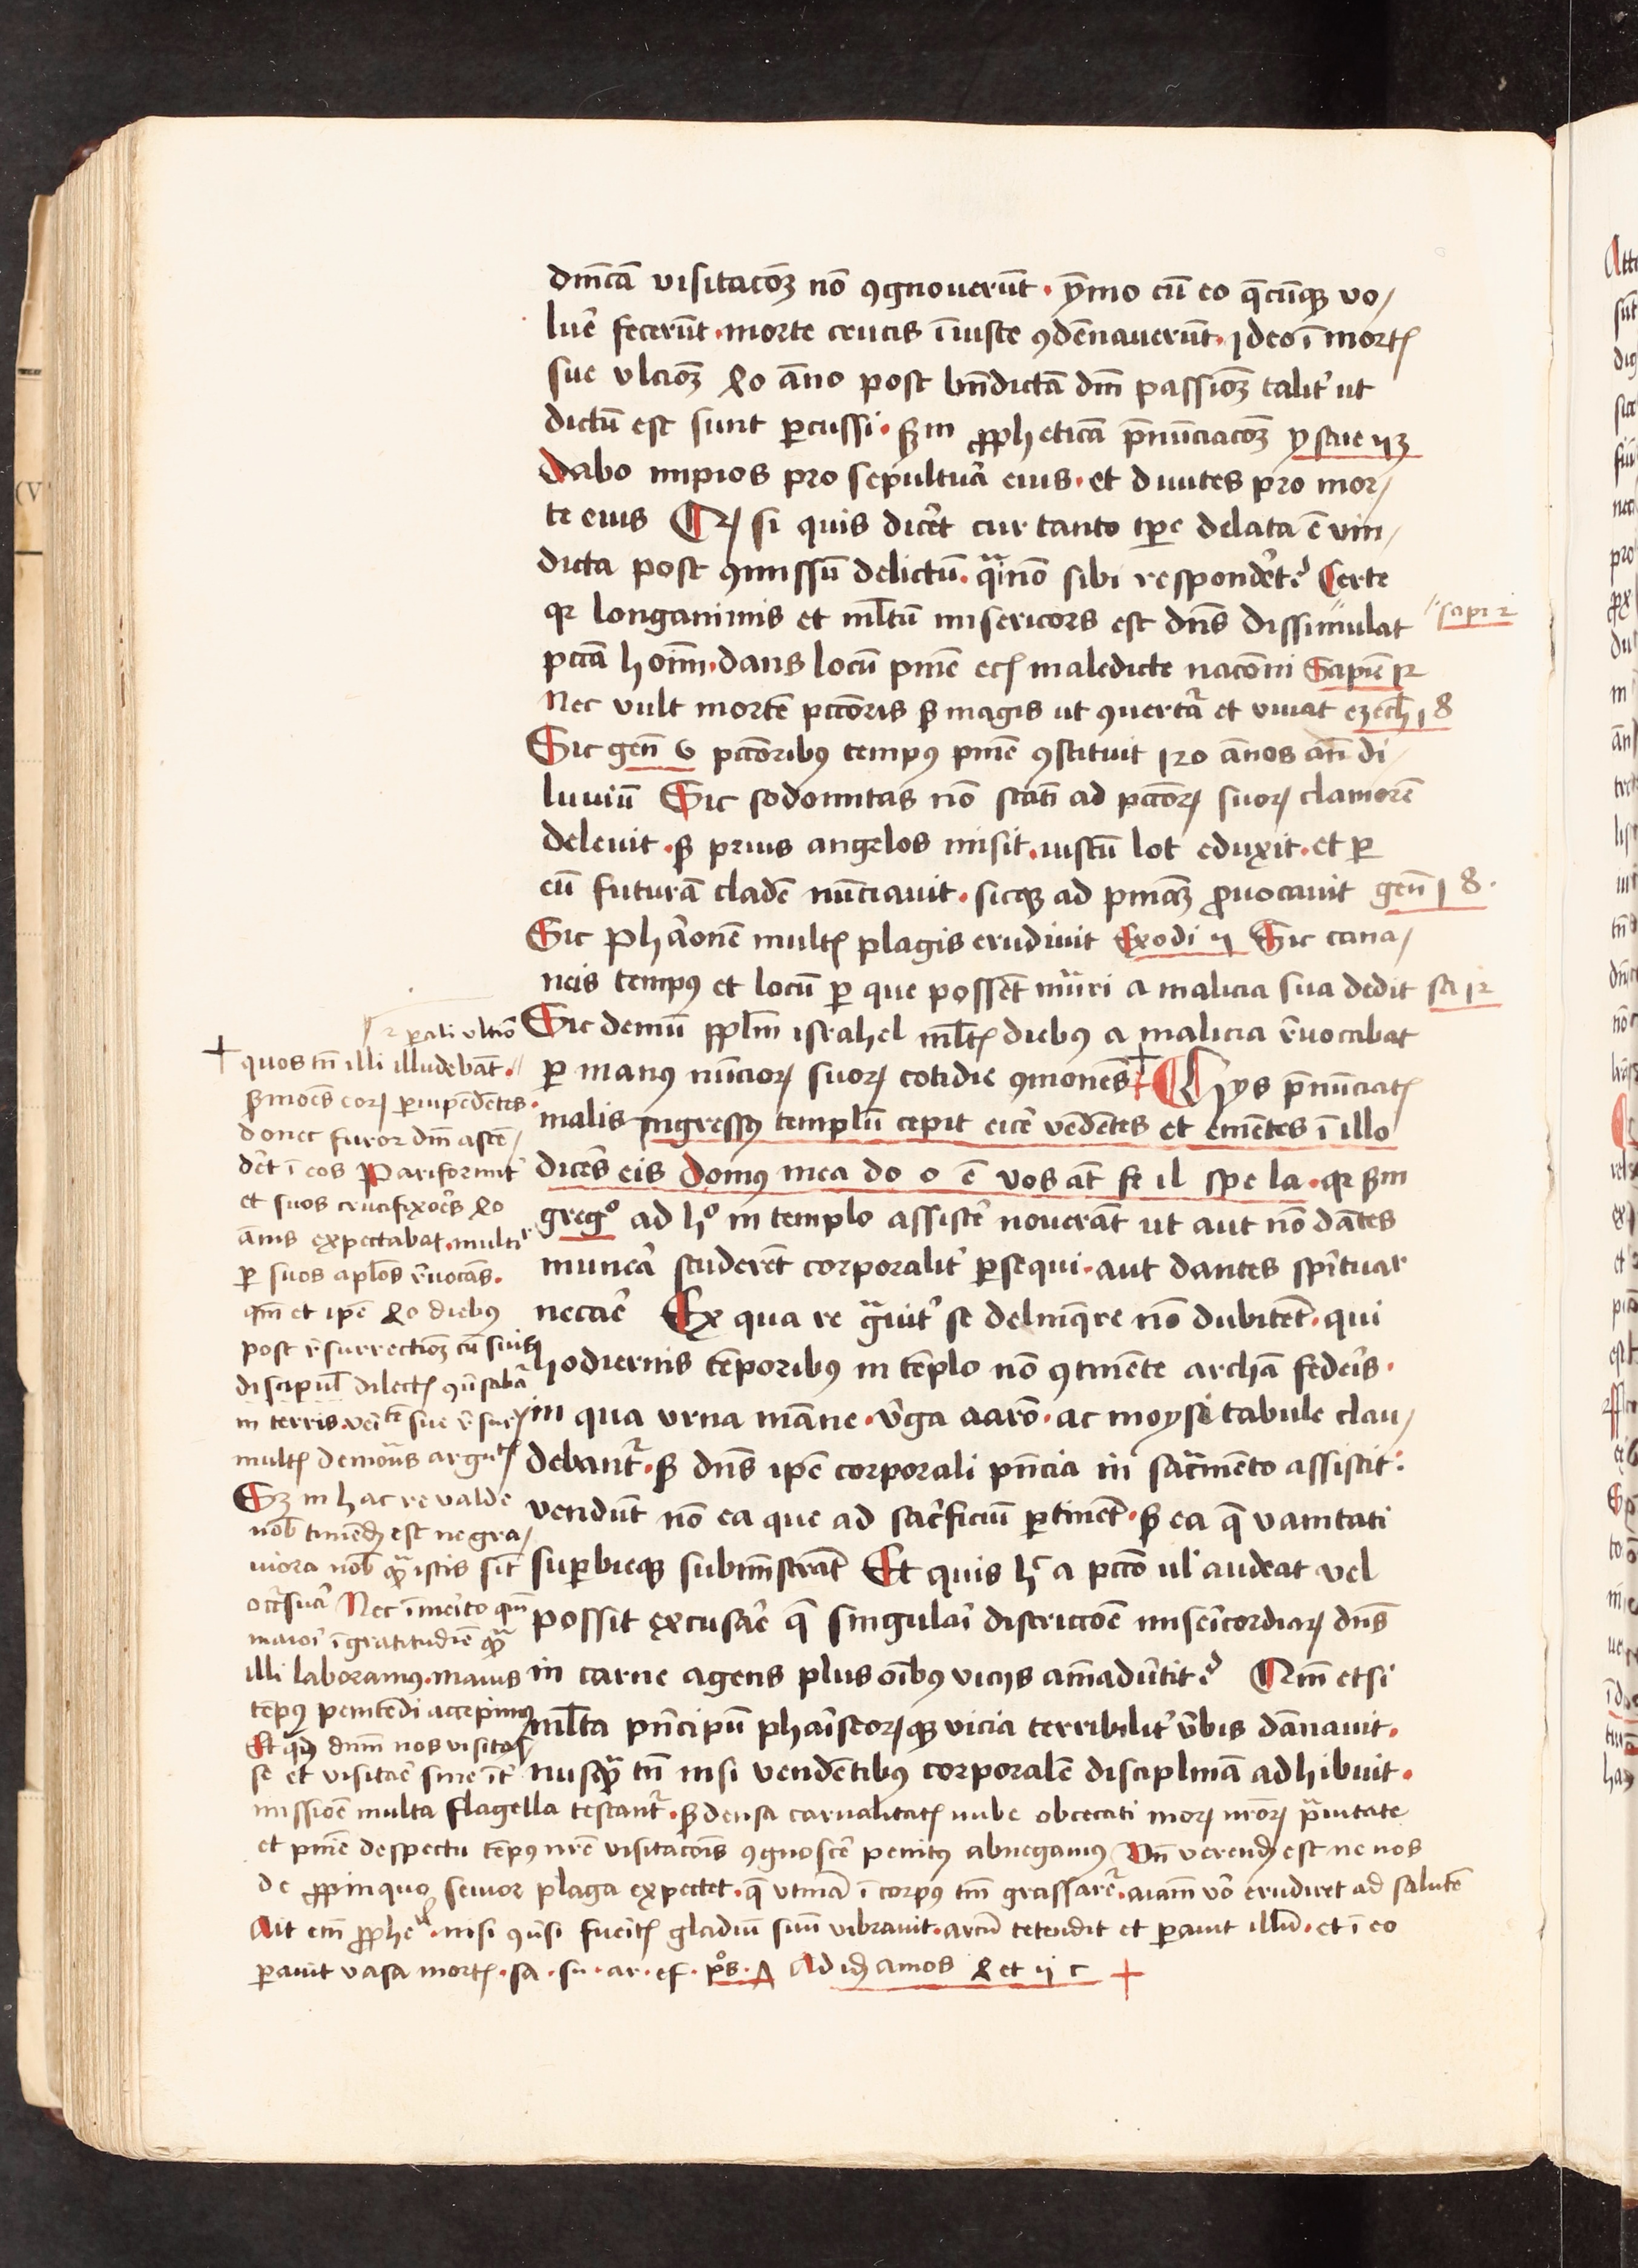 dn̄icā visitacōꝫ nō ꝯgnouerūt · ȳmo cū eo q̄cūqꝫ vo/
luēr fecerūt · morte crucis īiuste ꝯdēnauerūt · ideo ī mortꝭ
sue vlcioꝫ 40 āno post bn̄dictā dn̄i passioꝫ talit̕ ut
dictū est sunt ꝑcussi · scd̄m ꝓpheticā p̄nūciacoꝫ ysaie 53
Dabo impios pro sepultura eius · et diuites pro mor/
te eius Qꝫ si quis dicēt cur tanto tꝑe delata ē vin/
dicta post ꝯmissū delictū · q̄ nō sibi respondēt? Certe
qr longanimis et ml̄tū misericors est dn̄s dissimulat
sapi 12
pccā hoīm · dans locū pnīe ecꝭ maledicte nacōni Sapiē 12
Nec vult mortē pccōris sꝫ magis ut ꝯuertat̕ et viuat ezech̄ 18
Sic gen̄ 6 pccōribꝰ tempꝰ pnīe ꝯstituit 120 ānos an̄ di/
luuiū Sic sodomitas nō stati ad pccōrꝝ suorꝝ clamorē
deleuit · sꝫ prius angelos misit · iustū lot eduxit · et ꝑ
eū futurā cladē nūciauit · sicqꝫ ad pn̄iaꝫ ꝓuocauit gen̄ 18 ·
Sic pharaonē multꝭ plagis erudiuit Exodi Sic cana/
neis tempꝰ et locū ꝑ que possēt mutari a malicia sua dedit sa 12
Sic demū ppl̄m israhel ml̄tꝭ diebꝰ a malicia reuocabat
ꝑ manꝰ nūciorꝝ suorꝝ cotidie ꝯmonens + Hys p̄nūciatꝭ
malis Ingressꝰ templū cepit eicēr vēdentes et emētes ī illo
dicēs eis Domꝰ mea do o ē vos aūt fe il spe la · qr scd̄m
gregº ad hº in templo assistēr nouerāt ut aut nō dātes
munera studerēt corporalit̕ ꝑsequi · aut dantes spīrtuar
necarē Ex qua re grauit̕ se delinq̄re nō dubitent · qui
hodiernis tēporibꝰ in tēplo nō ꝯtinente archā federis ·
in qua vrna māne · v̕ga aarō · ac moysi tabule clau/
debant̕ · sꝫ dn̄s ipē corporali pn̄cia in sacramento assistit :
vendūt nō ea que ad sacrificiū ꝑtinēt · sꝫ ea q̄ vanitati
suꝑbieqꝫ submīstrāt Et quis h̕ a pccō ul̕ audeat vel
possit excusarē q̄ singulari districcōe misericordiarꝝ dn̄s
in carne agens plus oībꝰ vicijs aīaduertit? Nam etsi
ml̄ta pn̄cipū phariseorꝝqꝫ vicia terribilit̕ v̕bis dānauit ·
nusqꝫ tn̄ nisi vendētibꝰ corporalē disciplinā adhibuit ·
+ quos tn̄ illi illudebāt ·
sermoēs eorꝝ ꝑuipēdētes ·
donec furor dn̄i ascē/
dēt ī eos Pariformit̕
et suos crucifixoēs 40
ānis expectabat · multi
ꝑ suos aplōs reuocās ·
qm̄ et ipē 40 diebꝰ
post resurrectioꝫ cū suis
discipul̄ dilectꝭ ꝯu̕sabat̕
in terris · veritate sue resurꝝ
multꝭ demon̄s argumtꝭ
Sꝫ in hac re valde
nob̄ timēdꝫ est ne gra/
uiora nob̄ quam istis sīt
occursura Nec īmerito qm̄
maiori īgratitudie quam
illi laboramꝰ · maius
tēpꝰ penitēdi accepimꝰ
Et qꝫ dn̄m nos visitas
se et visitarē sine īter
missiōe multa flagella testant̕ · sꝫ densa carnalitatꝭ nube obcecati morꝝ nr̄orꝝ prauitate
et pnīe despectu tēpꝰ nrē visitacōis ꝯgnoscēr penitꝰ abnegamꝰ Vn̄ verendꝫ est ne nos
de ꝓpinquo seuior plaga expectet · q̄ vtinā ī corpꝰ tm̄ grassarēt̕ · aīam vō erudiret ad salutē
Ait em̄ ꝓphe · nisi ꝯu̕si fueritꝭ gladiū suū vibrauit · arcū tetendit et ꝑauit illū · et ī eo
ꝑauit vasa mortꝭ · sa · su · ar · ef · pōs · A Ad idꝫ amos 4 et c +